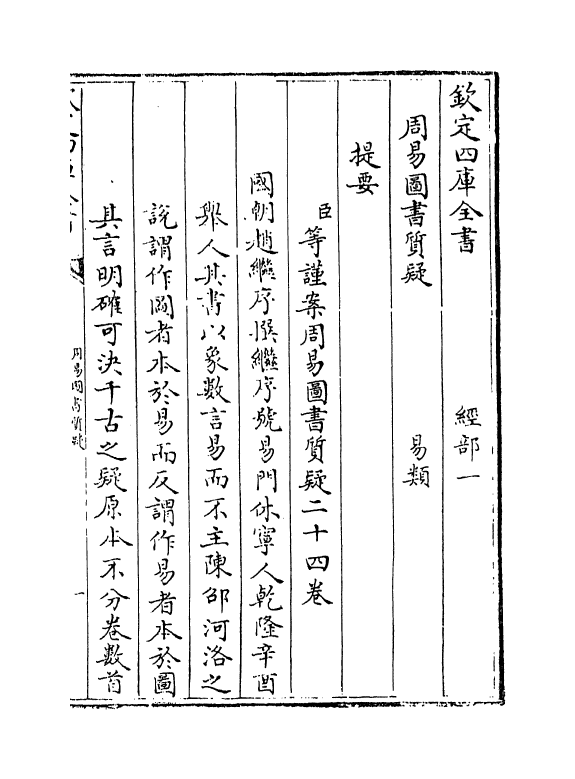 欽定四庫全書　經部一
周易圖書質疑　易類
提要
臣等謹案周易圖書質疑二十四卷
國朝趙繼序撰繼序號易門休寧人乾隆辛酉
舉人其書以象數言易而不主陳邵河洛之
說謂作圖者本於易而反謂作易者本於圖
其言明確可決千古之疑原本不分卷數首
周易圖書質疑
一